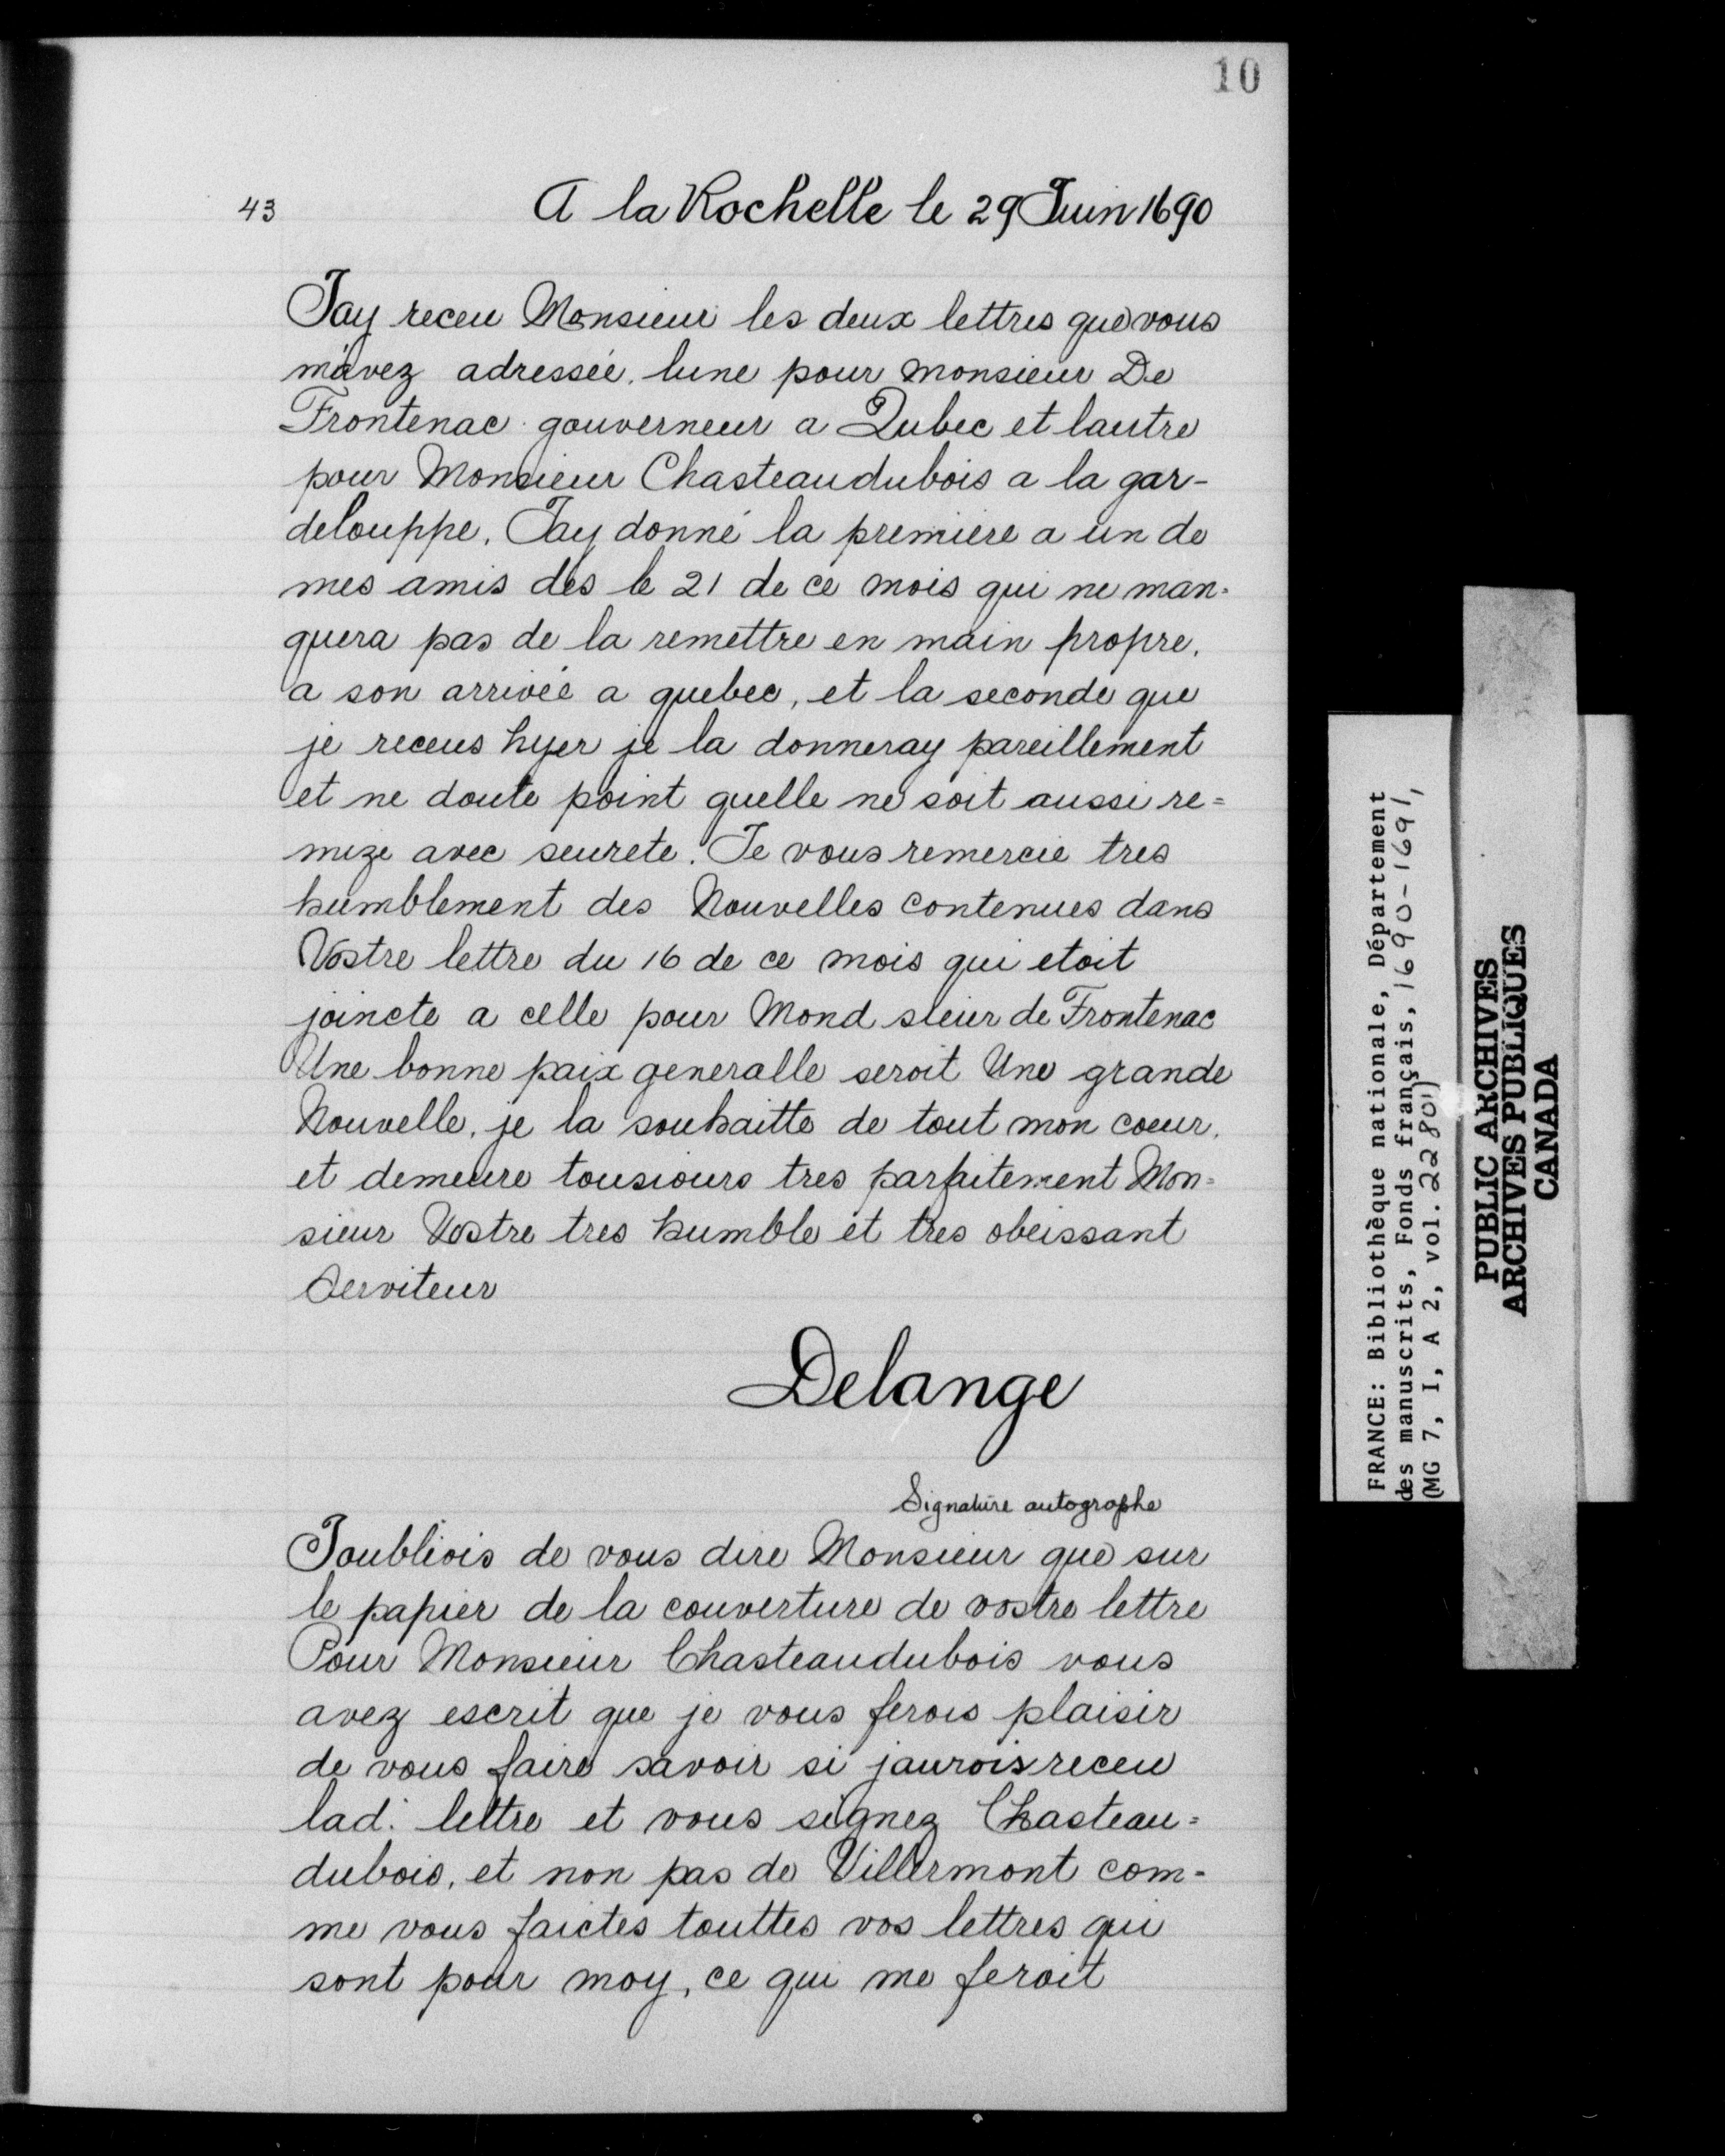 10
43
A la Rochelle le 29 Juin 1690
Jay receu Monsieur les deux lettres que vous
m'avez adressée. lune pour monsieur De
Frontenac gouverneur a Qubec et lautre
pour Monsieur Chasteaudubois a la gar-
delouppe. Jay donné la premiere a un de
mes amis dès le 21 de ce mois qui ne man-
quera pas de la remettre en main propre.
a son arrivée a quebec, et la seconde que
je receus hyer je la donneray pareillement
et ne doute point quelle ne soit aussi re=
mize avec seurete. Je vous remercie tres
humblement des Nouvelles contenues dans
Vostre lettre du 16 de ce mois qui etoit
joincte a celle pour Mond sieur de Frontenac
Une bonne paix generalle seroit Une grande
Nouvelle, je la souhaitte de tout mon coeur.
et demeure tousiours tres parfaitement Mon=
sieur Vostre tres humble et tres obeissant
Serviteur
Delange
Signature autographe
Joubliois de vous dire Monsieur que sur
le papier de la couverture de vostre lettre
Pour Monsieur Chasteaudubois vous
avez escrit que je vous ferois plaisir
de vous faire savoir si jaurois receu
lad. lettre et vous signez Chasteau=
dubois, et non pas de Villermont com-
me vous faictes touttes vos lettres qui
sont pour moy, ce qui me feroit
FRANCE: Bibliothèque nationale, Département
des manuscrits, Fonds français, 1690-1691,
(MG 7, I, A 2, vol. 22801)
PUBLIC ARCHIVES
ARCHIVES PUBLIQUES
CANADA